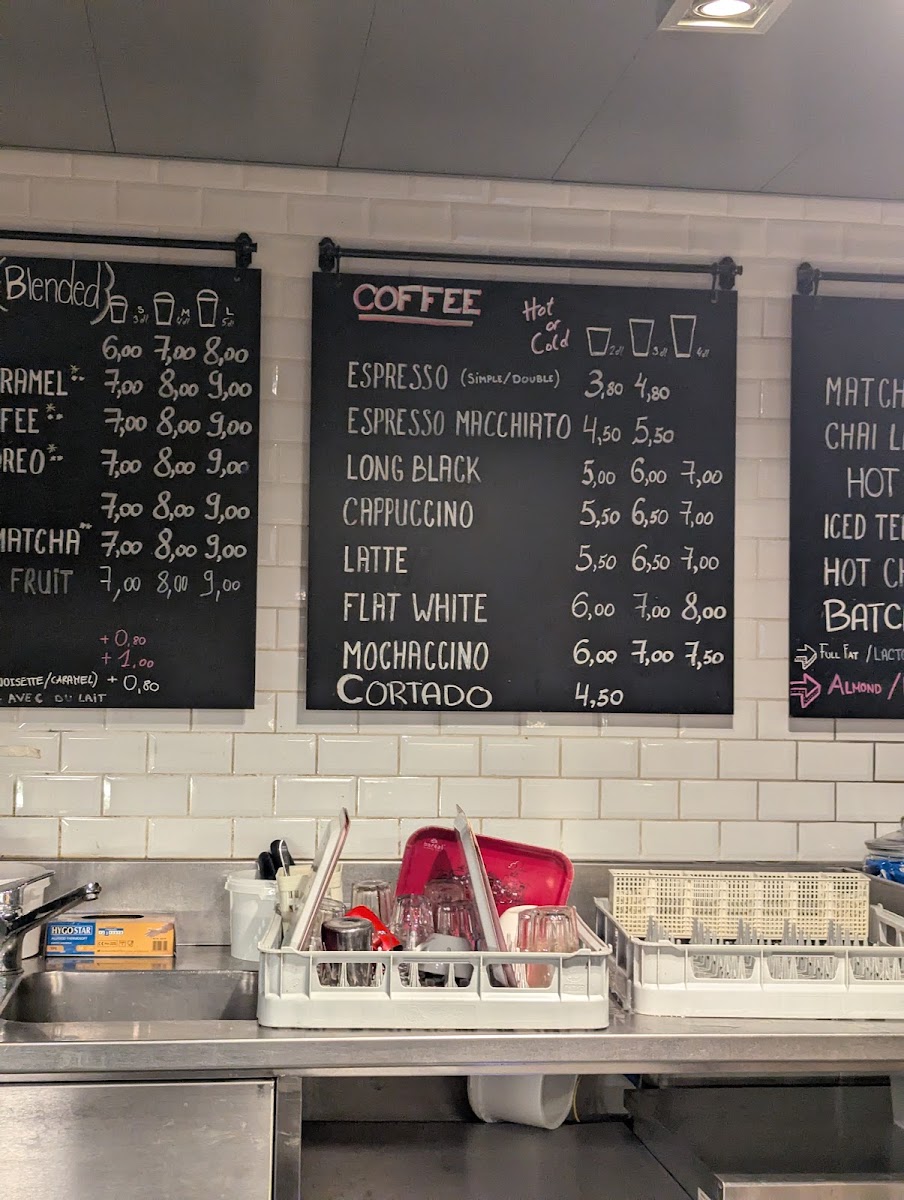 (Blended)
S M L
3dl 4dl 5dl
6,00 7,00 8,00
7,00 8,00 9,00
7,00 8,00 9,00
7,00 8,00 9,00
7,00 8,00 9,00
MATCHA** 7,00 8,00 9,00
FRUIT 7,00 8,00 9,00
+ 0,80
+ 1,00
/CARAMEL) + 0,80
AVEC DU LAIT
COFFEE
Hot
or
Cold
2dl 3dl 4dl
ESPRESSO (SIMPLE/DOUBLE) 3,80 4,80
ESPRESSO MACCHIATO 4,50 5,50
LONG BLACK 5,00 6,00 7,00
CAPPUCCINO 5,50 6,50 7,00
LATTE 5,50 6,50 7,00
FLAT WHITE 6,00 7,00 8,00
MOCHACCINO 6,00 7,00 7,50
CORTADO 4,50
MATCH
CHAI L
HOT
ICED TE
HOT CH
BATC
FULL FAT /LACTO
ALMOND /
HYGOSTAR